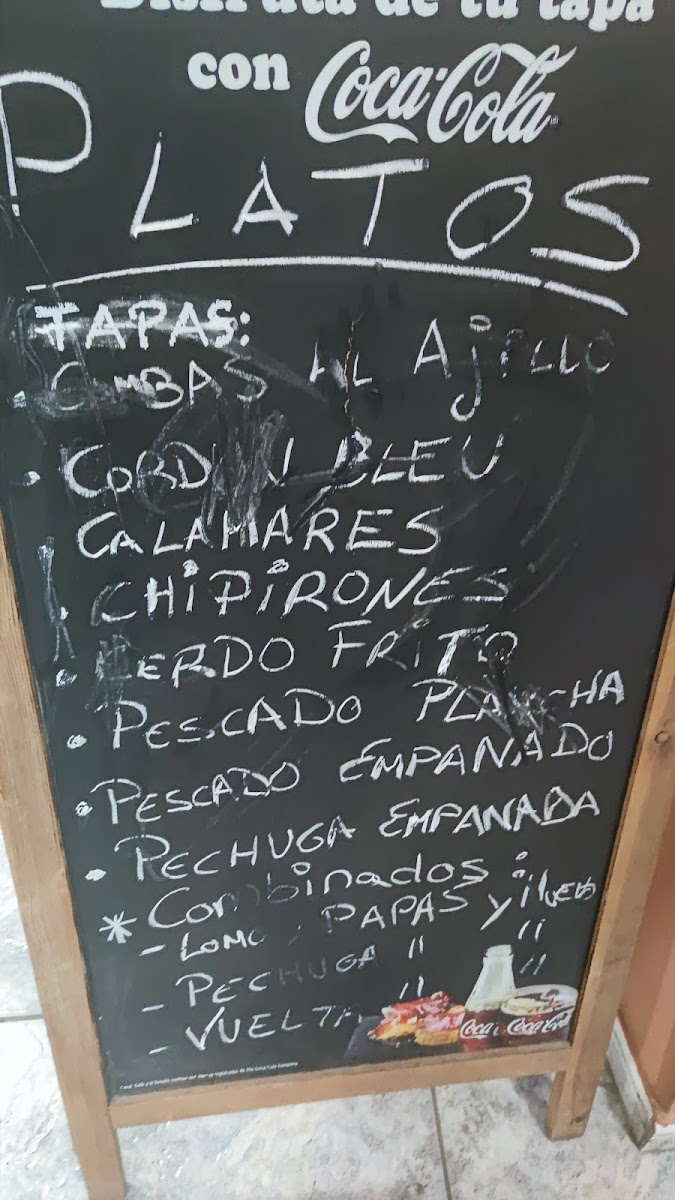 Disfruta de tu tapa
con Coca-Cola
PLATOS
TAPAS:
. GAMBAS AL AjiLLO
. CORDON BLEU
CALAMARES
. CHiPiRONES
. CERDO FRiTO
. PESCADO PLANCHA
. PESCADO EMPANADO
. PECHUGA EMPANADA
* Combinados:
- LOMO, PAPAS y HUEVOS
- PECHUGA " "
- VUELTA " "
Coca-Cola Coca-Cola